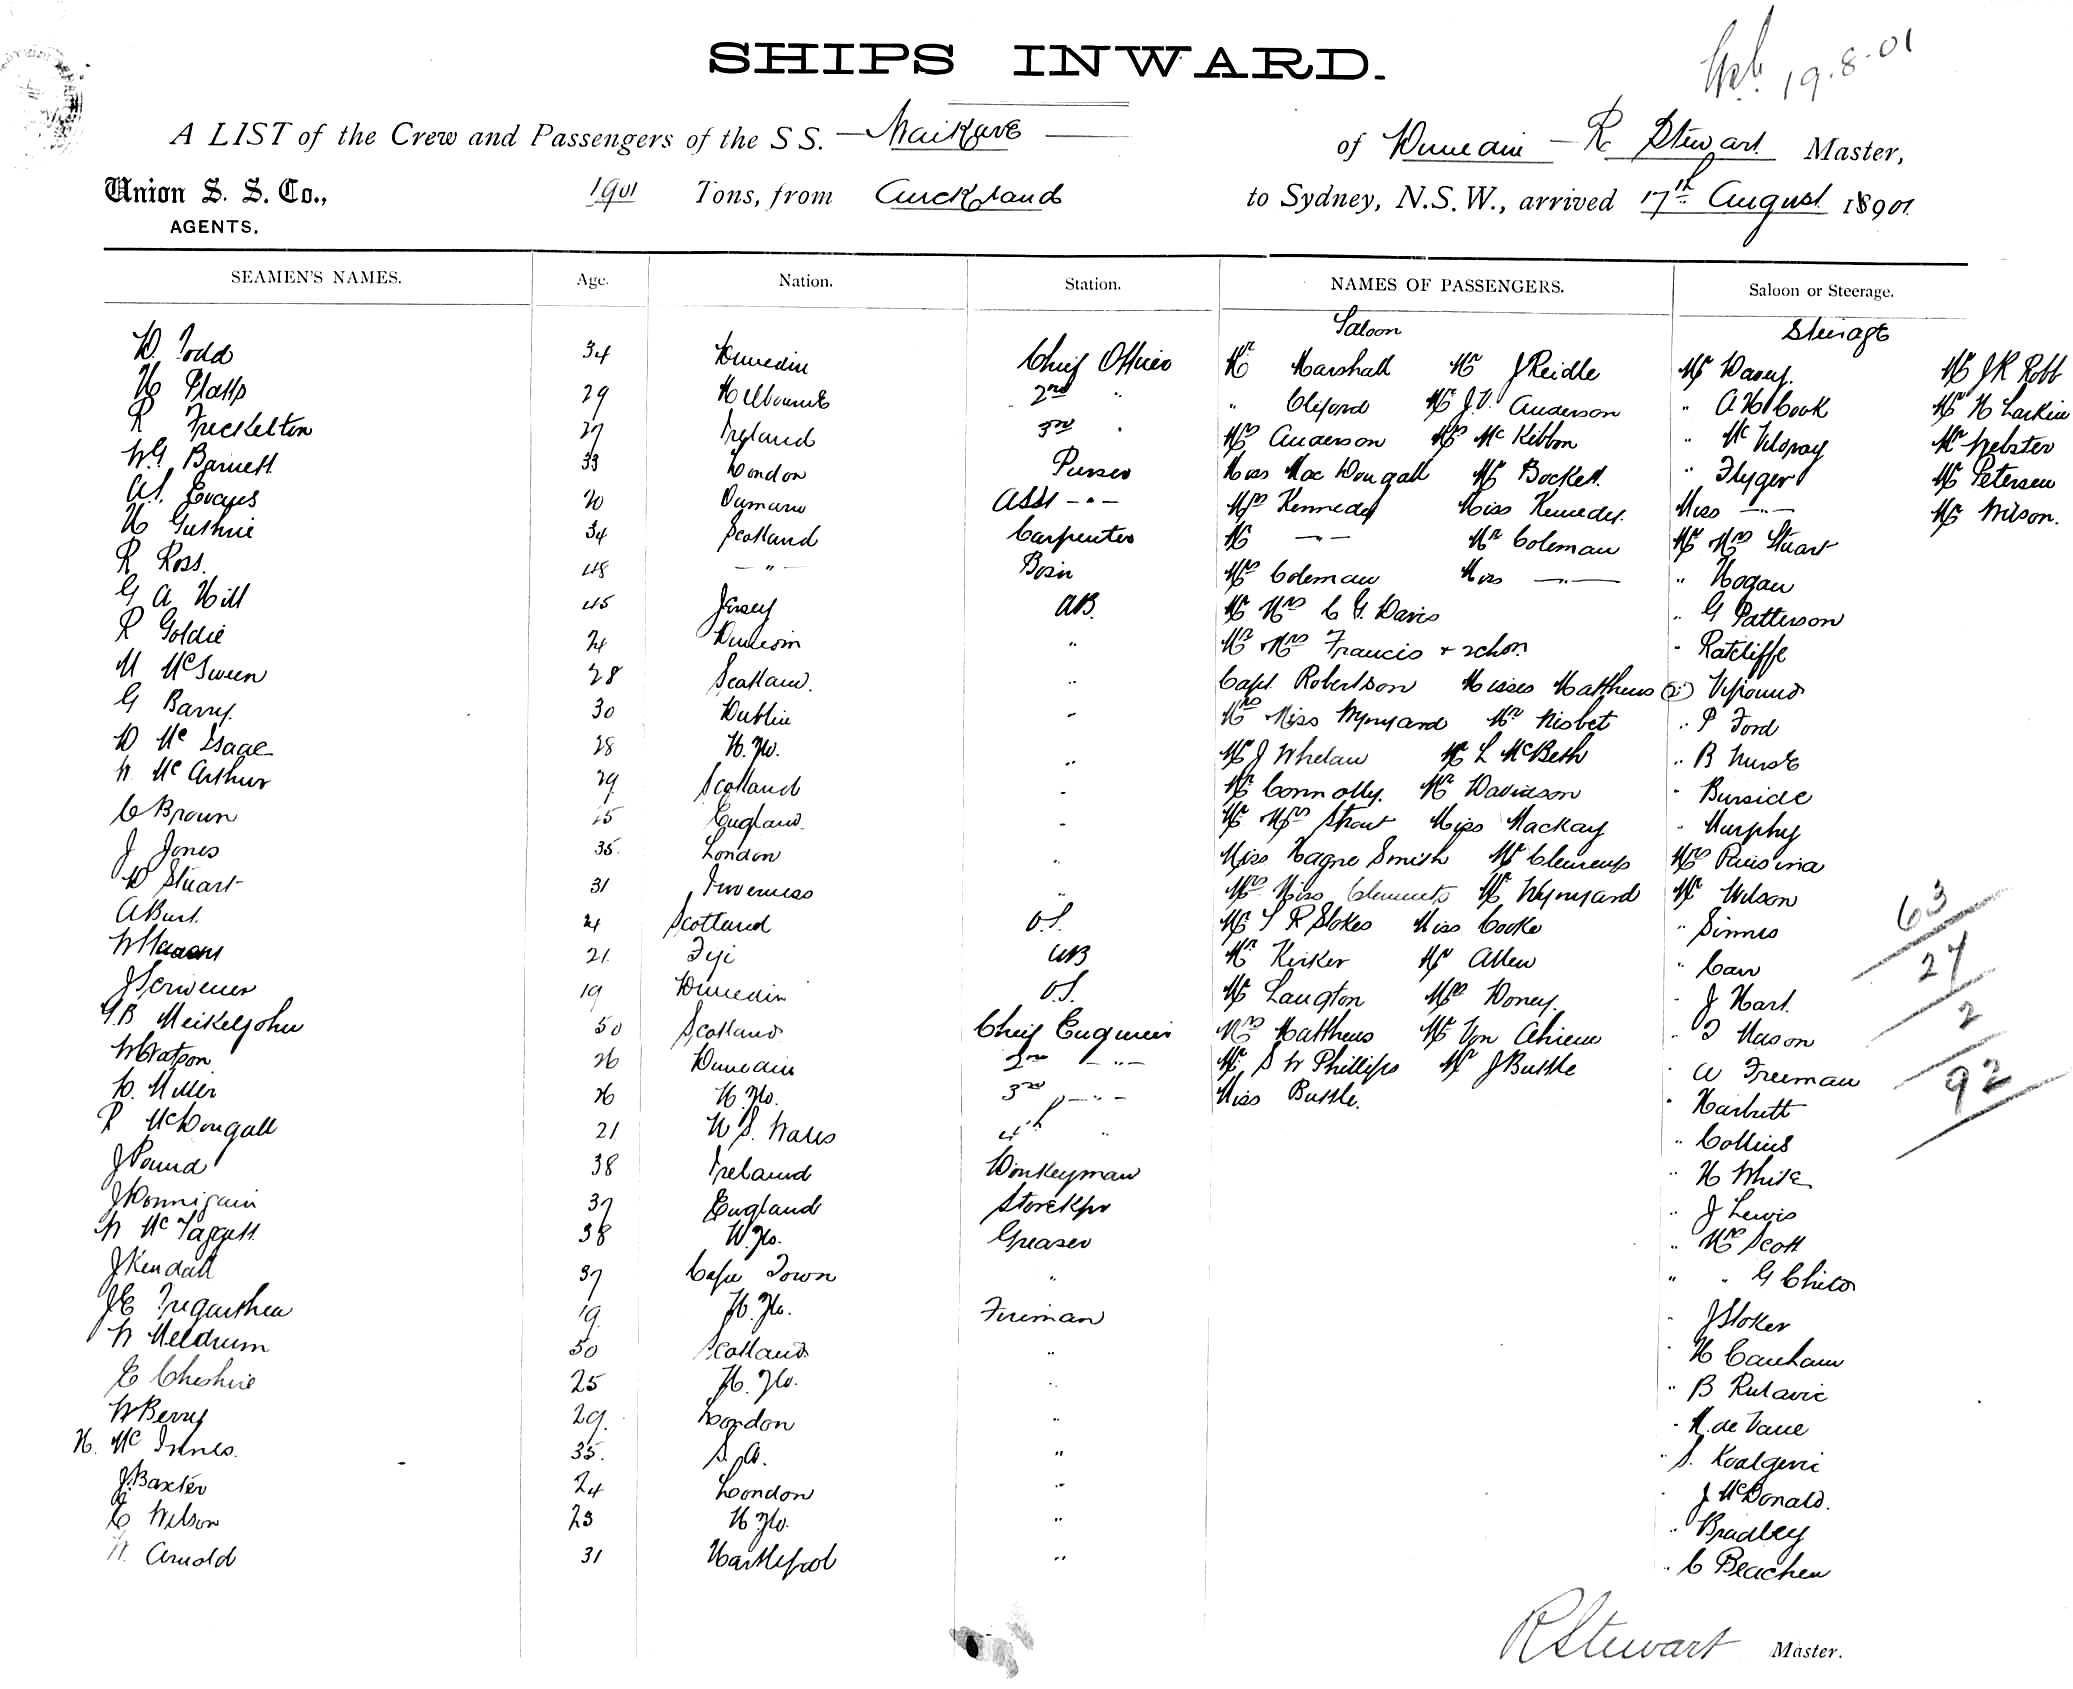 SHIPS INWARD.
19.8.01
A LIST of the Crew and Passengers of the S S. — Waikare — of Dunedin — R Stewart Master,
Union S. S. Co., 1901 Tons, from Auckland to Sydney, N.S.W., arrived 17th August 18901
AGENTS.
SEAMEN'S NAMES. Age. Nation. Station. NAMES OF PASSENGERS. Saloon or Steerage.
Saloon Steerage
D. Todd 34 Dunedin Chief Officer Mr Marshall Mr J Reidle Mr Davey. Mr J R Robb
H Platts 29 Melbourne 2nd " " Cliford Mr J.V. Anderson " A H Cook Mr H Larkin
R Freckelton 27 Ireland 3rd " Mrs Anderson Mrs McKibbon " McIlroay Mr Webster
W G Barnett 33 London Purser Miss MacDougall Mr Bockett. " Flyger Mr Petersen
A.S. Evans 20 Oamaru Asst — " — Mrs Kennedy Miss Kennedy. Miss — " — Mr Wilson.
H Guthrie 34 Scotland Carpenter Mr — " — Mr Coleman Mr Mrs Stuart
R Ross. 48 — " — Bosn Mrs Coleman Miss — " — " Hogan
G A Hill 45 Jersey AB. Mr Mrs C G. Davis " G Patterson
R Goldie 24 Dunedin " Mr Mrs Francis + 2 chdn " Ratcliffe
M McSween 28 Scotland. " Capt. Robertson Misses Matthews (2) " Upound
G Barry. 30 Dublin " Mrs Miss Wynyard Mr Nisbet " P Ford
D McIsaac 28 N. Zld. " Mr J Whelan Mr L McBeth " B Nurse
W McArthur 29 Scotland " Mr Connolly. Mr Davidson " Burside
C Brown 25 England " Mr Mrs Strout Miss Mackay " Murphy
J Jones 35. London " Miss Hagne Smith Mr Clements Mrs
D Stuart 31 Inverness " Mrs Miss Clements Mr Wynyard Mr Wilson
A Burt. 21 Scotland O.S. Mr S R Stokes Miss Cooke " Sinnes 63
21 Fiji AB Mr Kerker Mr Allen " Carr 27
J Scrivener 19 Dunedin O.S. Mr Langton Mrs Doney. " J Hart. 2
G.B Meikeljohn 50 Scotland Chief Engineer Mrs Matthews Mr Von " J Mason
W Watson 26 Dunedin 2nd — " — Mr S W Phillips Mr J Buttle " A Freeman 92
D. Miller 26 N. Zld. 3rd — " — Miss Buttle. " Harbutt
R McDougall 21 N S. Wales 4th " " Collins
J Pound 38 Ireland Donkeyman " H White
J Donnigain 37 England Storekpr " J Lewis
W McTaggett 38 N. Zld. Greaser " Mr Scott
J Kendall 37 Cape Town " " " G Chitco
J E Tregurthen 19 N. Zld. Fireman " J Stoker
W Meldrum 50 Scotland " " H Canham
E Cheshire 25 N. Zld. " " B Rulavic
W Berry 29. London " " M. de Vaue
H. McInnes. 35. S. A. " " S. Koalgeric
J. Baxter 24 London " " J McDonald.
C Wilson 23 N Zld. " " Bradley
Arnold 31 Hartlepool " " C Beachen
R Stewart Master.